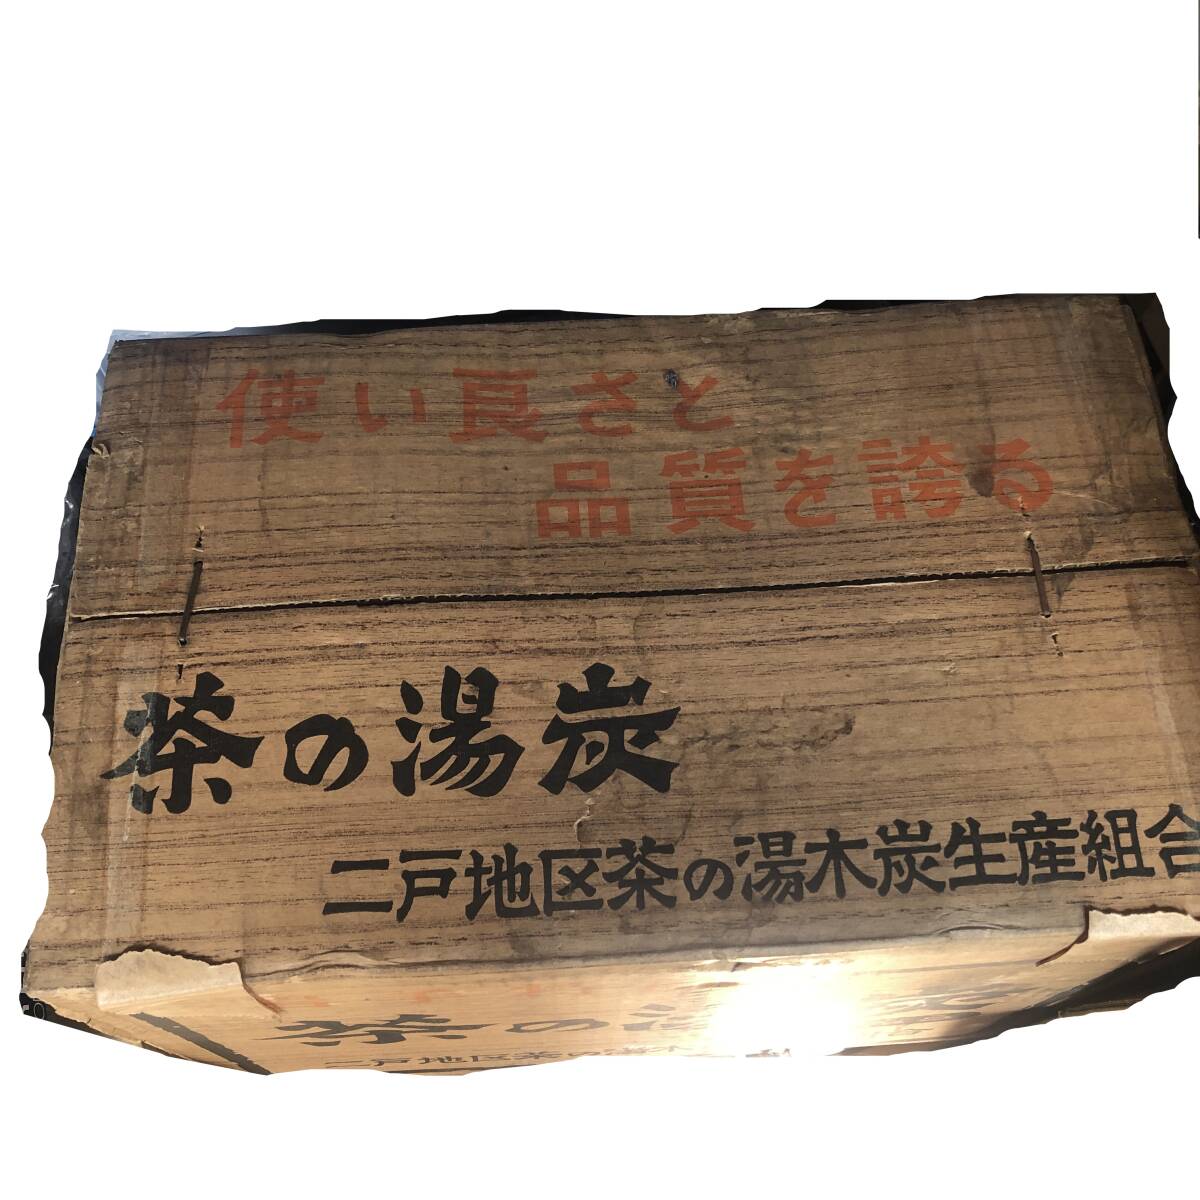 使い良さと
品質を誇る
茶の湯炭
二戸地区茶の湯木炭生産組合
茶の湯
二戸地区茶の湯木